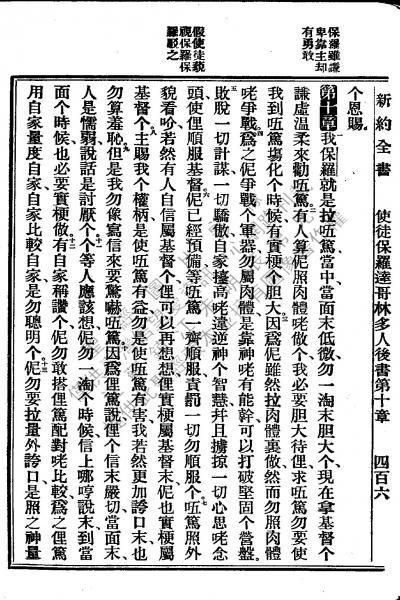 保羅雖謙
卑靠主却
有勇敢
假使徒藐
視保羅保
羅駁之
新約全書 使徒保羅達哥林多人後書第十章 四百六
個恩賜。
第十章 我保羅就是拉㕶篤當中、當面末低微、勿一淘末胆大個、現在拿基督個
謙虛溫柔來勸㕶篤、二有人算伲照肉體咾做個、我必要胆大待俚、求㕶篤勿要使
我到㕶篤塲化個時候、有實梗個胆大、三因爲伲雖然拉肉體裏做、然而勿照肉體
咾爭戰、四爲之伲爭戰個軍器、勿屬肉體、是靠神咾有能幹、可以打破堅固個營盤、
五敗脫一切計謀、一切驕傲自家擡高咾違逆神個智慧、幷且擄掠一切心思咾念
頭、使俚順服基督、六伲已經預備、等㕶篤一齊順服、責罰一切勿順服個、七㕶篤照外
貌看哈、若然有人自信屬基督個、俚可以再想想、俚實梗屬基督末、伲也實梗屬
基督個、八主賜我個權柄、是使㕶篤有益、勿是使㕶篤有害、我若然更加誇口末、也
勿算羞恥、九但是我勿像寫信來要驚嚇㕶篤、十因爲俚篤說、俚個信末嚴切、當面末
人是懦弱、說話是討厭個、十一個等人應該想、伲勿一淘個時候、信上哪哼說末、到當
面個時候、也必要實梗做、十二有自家稱讚個、伲勿敢搭俚篤配對咾比較、爲之俚篤
用自家量度自家、自家比較自家、是勿聰明個、十三伲勿要拉量外誇口、是照之神量